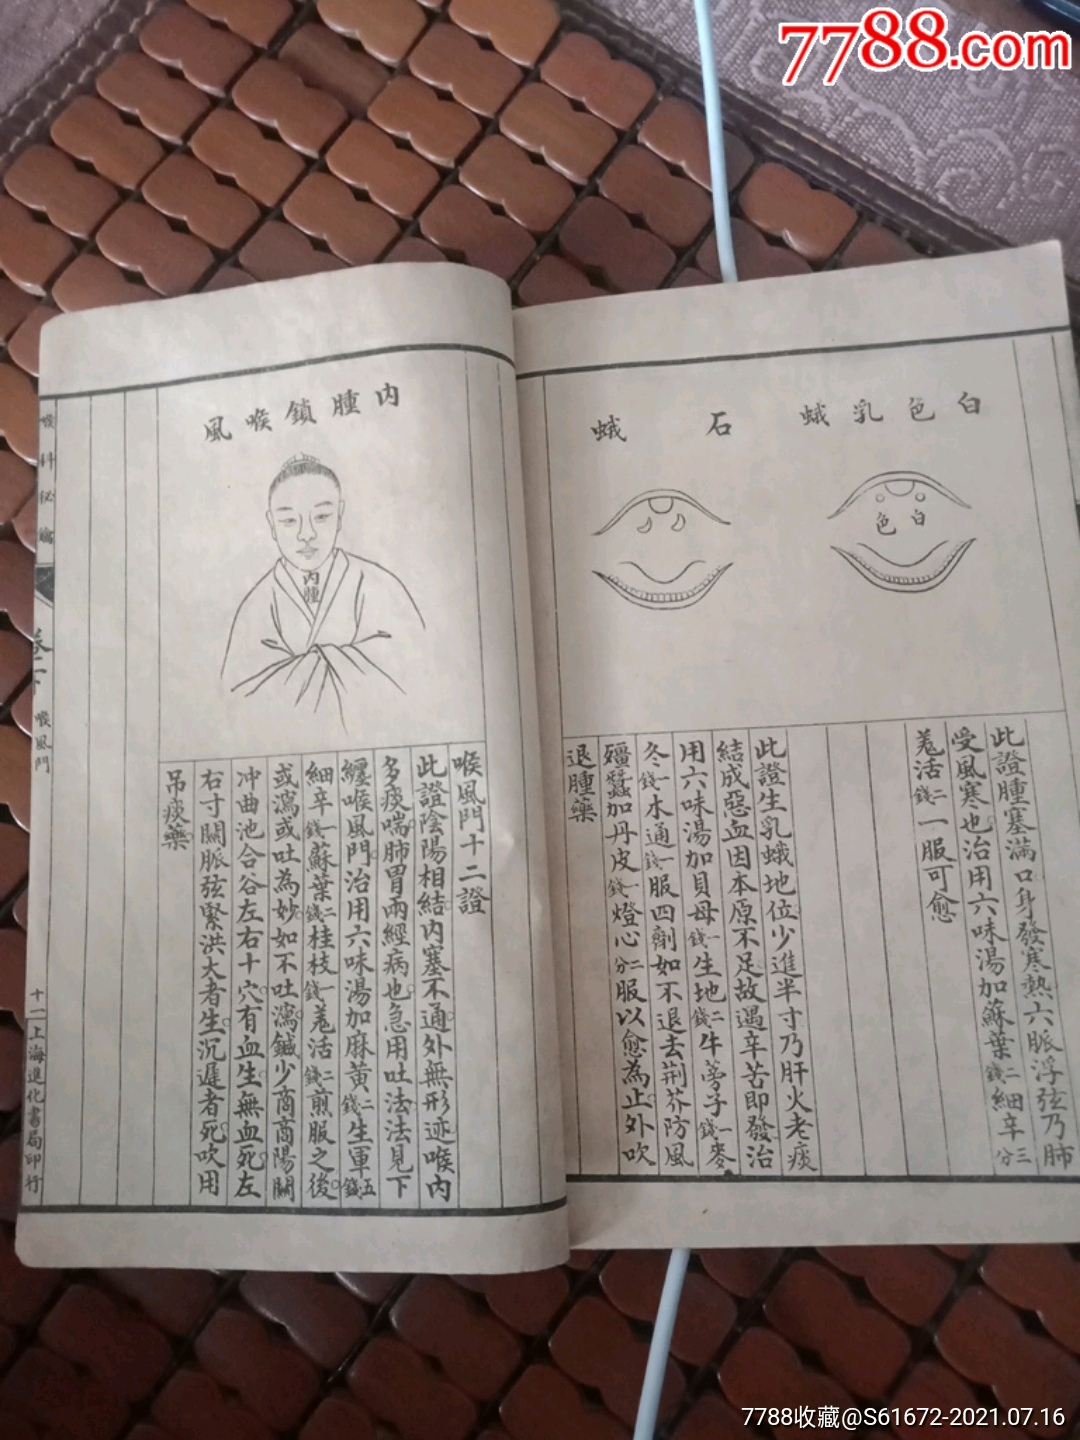 7788.com
白色乳蛾
白色
此證腫塞滿口身發寒熱六脈浮弦乃肺
受風寒也治用六味湯加蘇葉二錢細辛三分
羗活二錢一服可愈
石蛾
此證生乳蛾地位少進半寸乃肝火老痰
結成惡血因本原不足故遇辛苦即發治
用六味湯加貝母一錢生地二錢牛蒡子一錢麥
冬一錢木通一錢服四劑如不退去荆芥防風
殭蠶加丹皮一錢燈心二分服以愈為止外吹
退腫藥
內腫鎖喉風
內腫
喉風門十二證
此證陰陽相結內塞不通外無形迹喉內
多痰喘肺胃兩經病也急用吐法法見下
纏喉風門治用六味湯加麻黃二錢生軍五錢
細辛一錢蘇葉二錢桂枝一錢羗活二錢煎服之後
或瀉或吐為妙如不吐瀉鍼少商商陽關
冲曲池合谷左右十穴有血生無血死左
右寸關脈弦緊洪大者生沉遲者死吹用
吊痰藥
喉科秘
卷二下
喉風門
十二
上海進化書局印行
7788收藏@S61672-2021.07.16